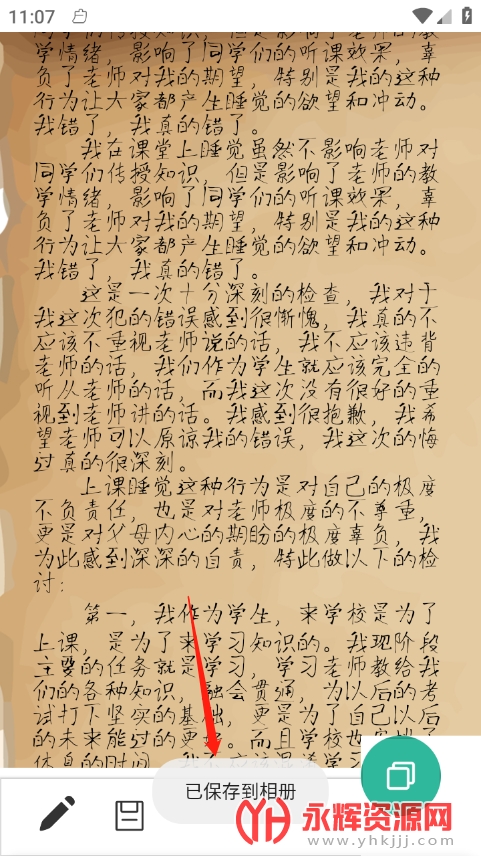 11:07
学情绪，影响了同学们的听课效果，辜
负了老师对我的期望，特别是我的这种
行为让大家都产生睡觉的欲望和冲动。
我错了，我真的错了。
我在课堂上睡觉虽然不影响老师对
同学们传授知识，但是影响了老师的教
学情绪，影响了同学们的听课效果，辜
负了老师对我的期望，特别是我的这种
行为让大家都产生睡觉的欲望和冲动。
我错了，我真的错了。
这是一次十分深刻的检查，我对于
我这次犯的错误感到很惭愧，我真的不
应该不重视老师说的话，我不应该违背
老师的话，我们作为学生就应该完全的
听从老师的话，而我这次没有很好的重
视到老师讲的话。我感到很抱歉，我希
望老师可以原谅我的错误，我这次的悔
过真的很深刻。
上课睡觉这种行为是对自己的极度
不负责任，也是对老师极度的不尊重，
更是对父母内心的期盼的极度辜负，我
为此感到深深的自责，特此做以下的检
讨：
第一，我作为学生，来学校是为了
上课，是为了来学习知识的。我现阶段
主要的任务就是学习，学习老师教给我
们的各种知识，融会贯通，为以后的考
试打下坚实的基础，更是为了自己以后
的未来能过的更好。而且学校也
休息的时间，我不应该
已保存到相册
永辉资源网
www.yhkjjj.com